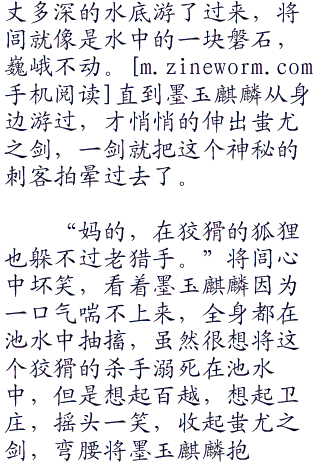 丈多深的水底游了过来，将
闾就像是水中的一块磐石，
巍峨不动。[m.zineworm.com
手机阅读]直到墨玉麒麟从身
边游过，才悄悄的伸出蚩尤
之剑，一剑就把这个神秘的
刺客拍晕过去了。
“妈的，在狡猾的狐狸
也躲不过老猎手。”将闾心
中坏笑，看着墨玉麒麟因为
一口气喘不上来，全身都在
池水中抽搐，虽然很想将这
个狡猾的杀手溺死在池水
中，但是想起百越，想起卫
庄，摇头一笑，收起蚩尤之
剑，弯腰将墨玉麒麟抱